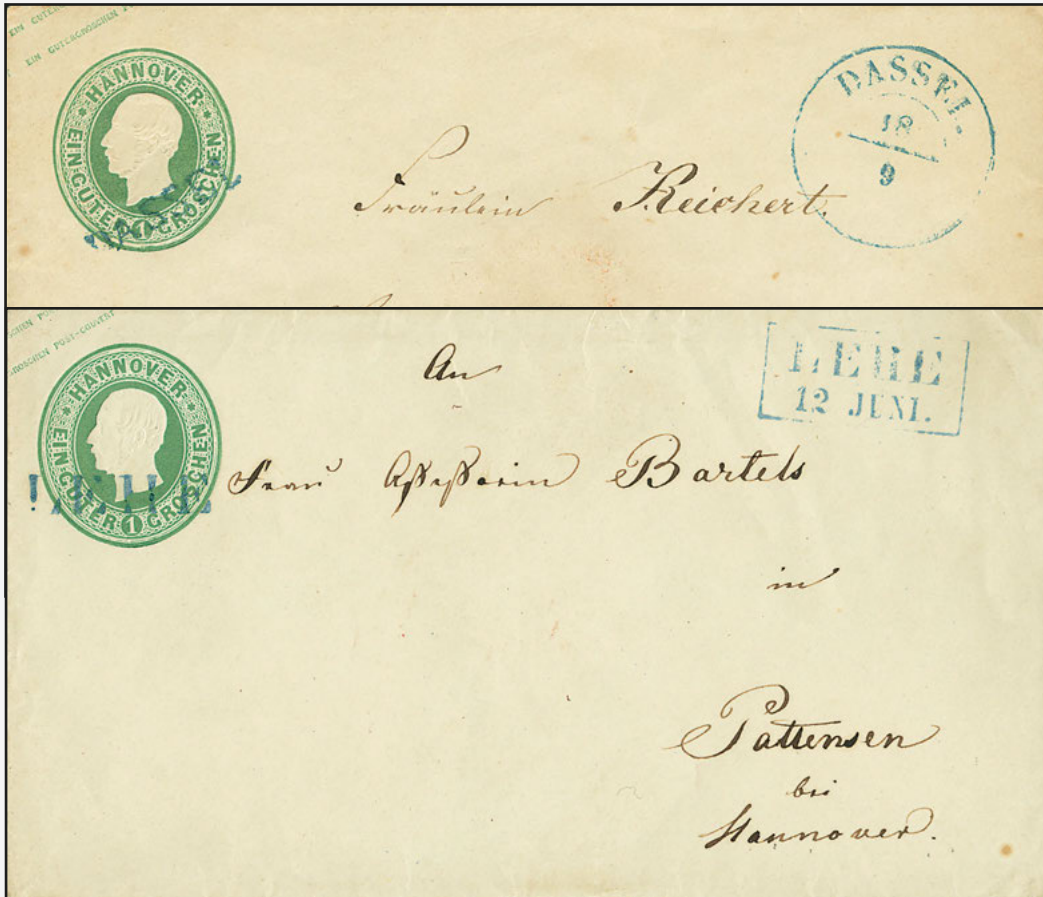 EIN GUTERGROSCHEN P
EIN GUTERGROSCHEN
* HANNOVER *
EIN GUTER 1 GROSCHEN
DASSEL.
18
9
Fräulein Reichert.
GROSCHEN POST-COUVERT
* HANNOVER *
EIN GUTER 1 GROSCHEN
LEHE
LEHE
12 JUNI.
An
Frau Assessorin Bartels
in
Pattensen
bei
Hannover.